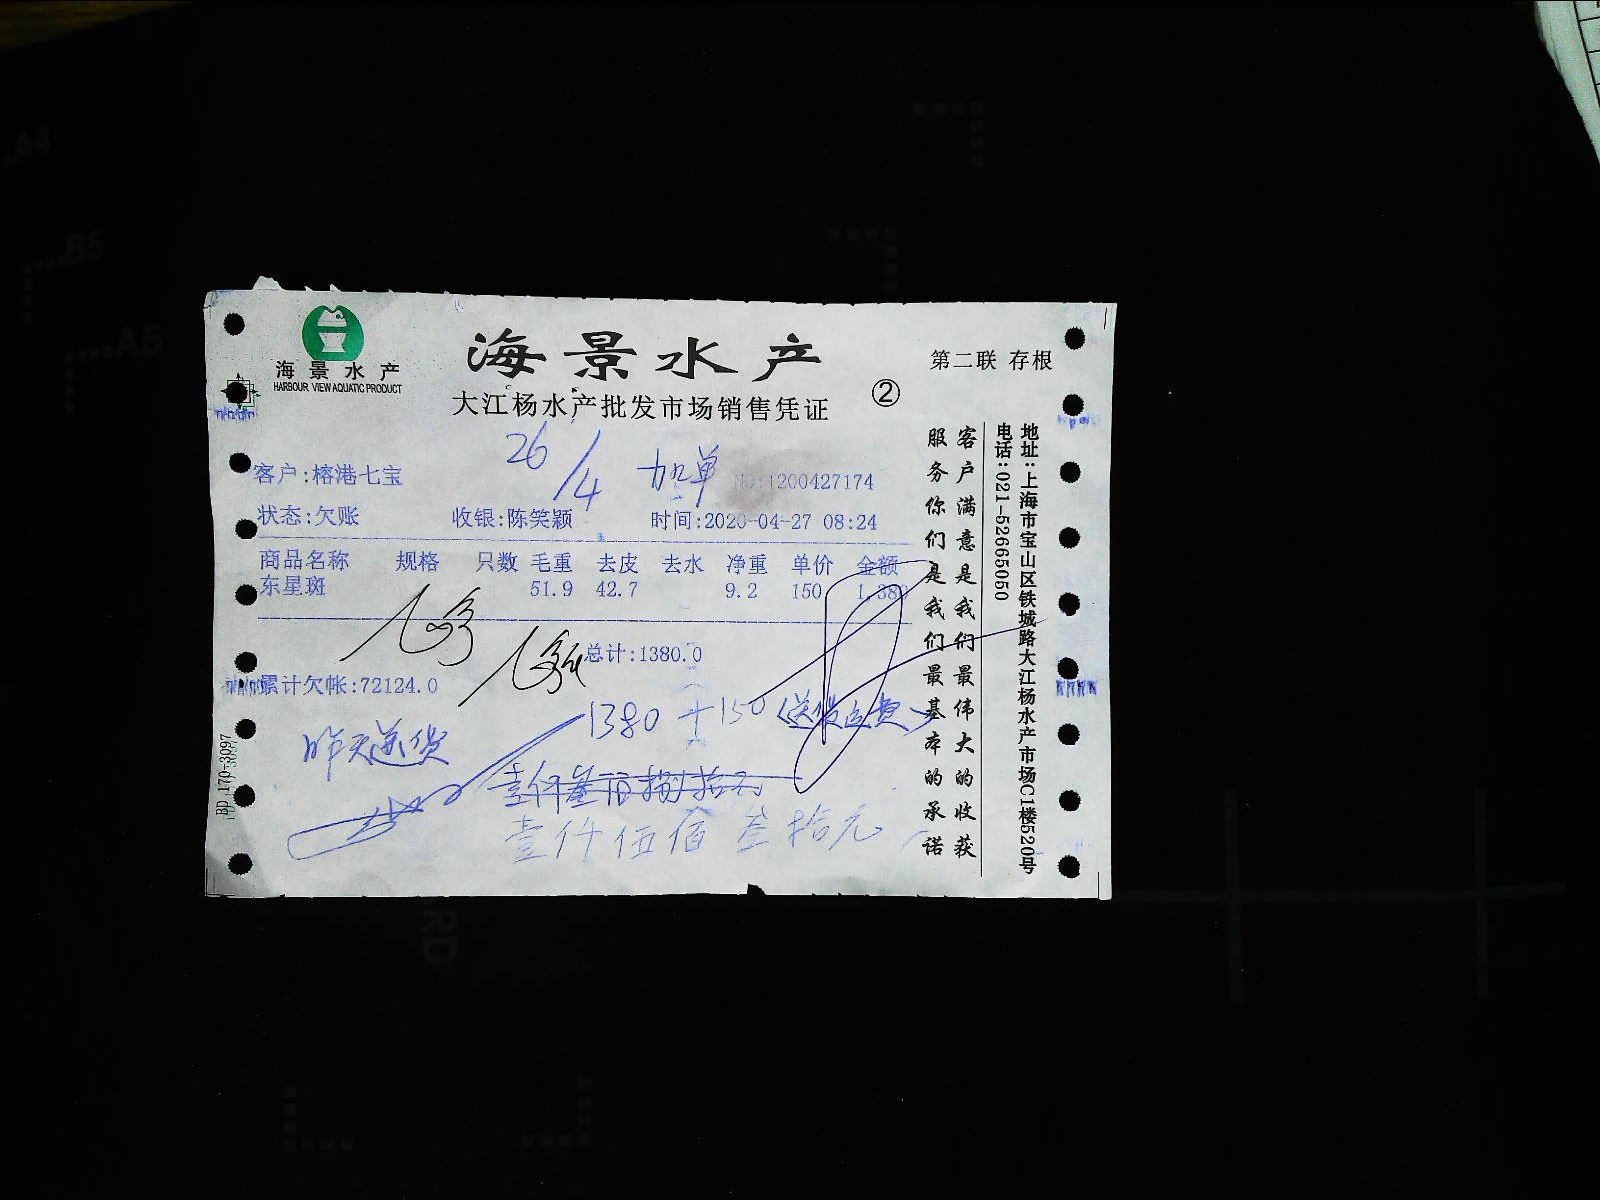 海景水产
HARBOUR VIEW AQUATIC PRODUCT
海景水产
第二联 存根
大江杨水产批发市场销售凭证
②
26/4 加单
客户:榕港七宝
NO:1200427174
状态:欠账 收银:陈笑颖 时间:2020-04-27 08:24
商品名称 规格 只数 毛重 去皮 去水 净重 单价 金额
东星斑 51.9 42.7 9.2 150 1,380
总计:1380.0
累计欠帐:72124.0
1380+150(送货运费)
昨天送货
壹仟叁佰捌拾元
壹仟伍佰叁拾元
客户满意是我们最伟大的收获
服务你们是我们最基本的承诺
地址:上海市宝山区铁城路大江杨水产市场C1楼520号
电话:021-52665050
BD 170-3097
A4
B5
A5
RD